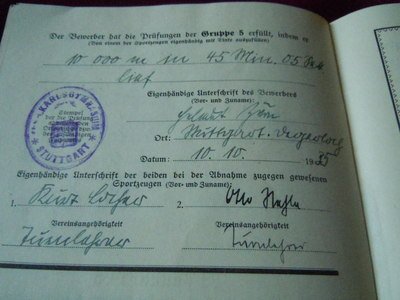 Der Bewerber hat die Prüfungen der Gruppe 5 erfüllt, indem er
(Von einem der Sportzeugen eigenhändig mit Tinte auszufüllen)
10 000 m in 45 Min. 05 Sek
lief
Eigenhändige Unterschrift des Bewerbers
(Vor- und Zuname):
Helmut
Stempel
der die Prüfung
STUTTGART
Ort: Stuttgart-Degerloch
Datum: 10.10. 19
Eigenhändige Unterschrift der beiden bei der Abnahme zugegen gewesenen
Sportzeugen (Vor- und Zuname):
1. Kurt 2. Otto
Vereinsangehörigkeit Vereinsangehörigkeit
Turnlehrer Turnlehrer